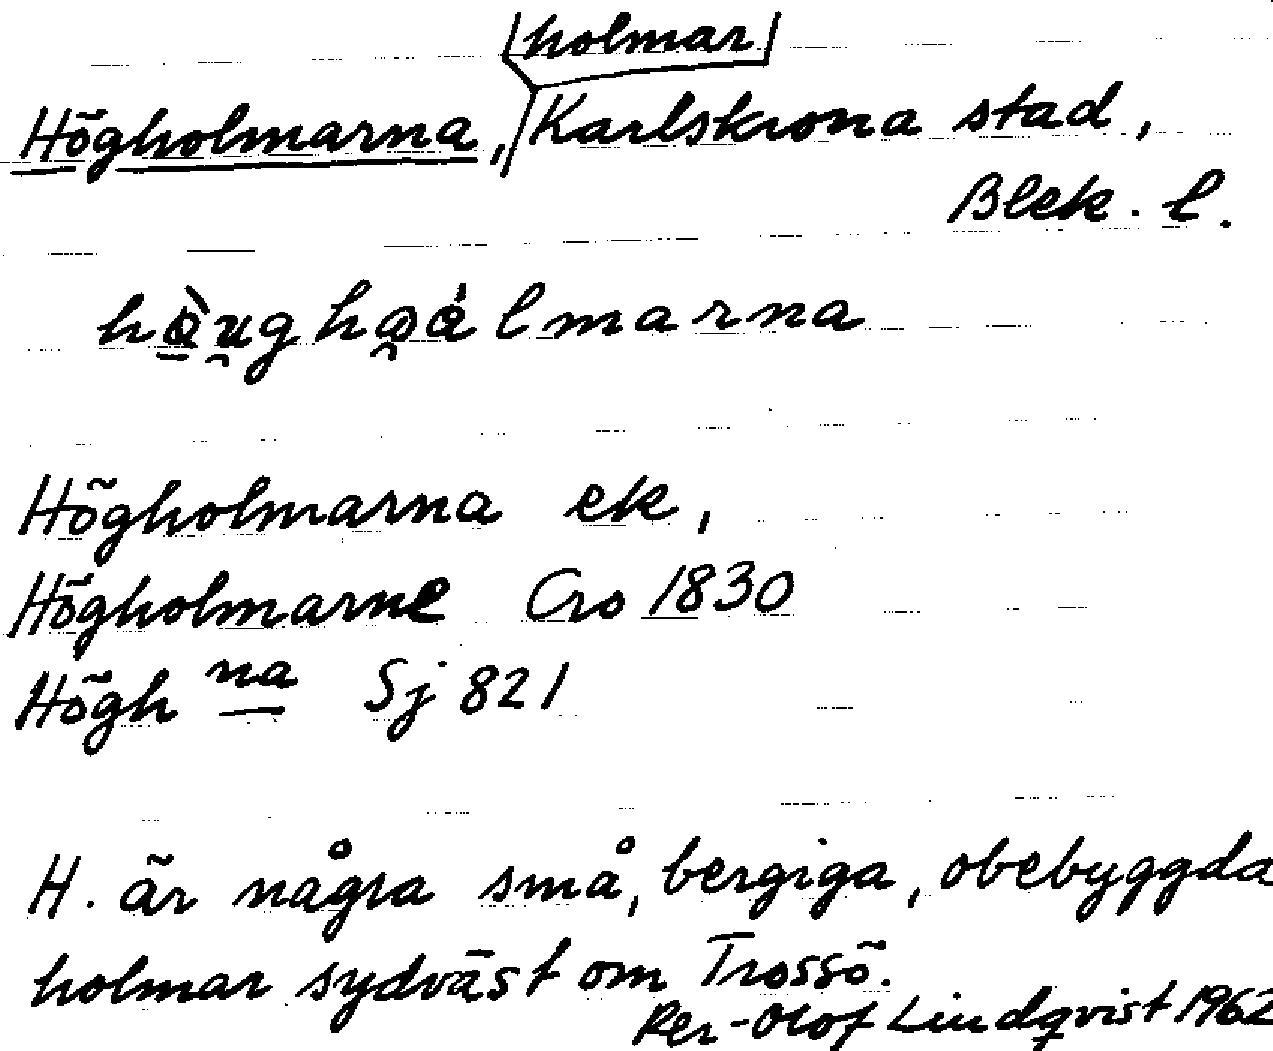 holmar
Högholmarna, Karlskrona stad,
Blek. l.
hàu̯gho̯álmarna
Högholmarna ek,
Högholmarne Cro 1830
Högh na Sj 821
H. är några små, bergiga, obebyggda
holmar sydväst om Trossö.
Per-Olof Lindqvist 1962